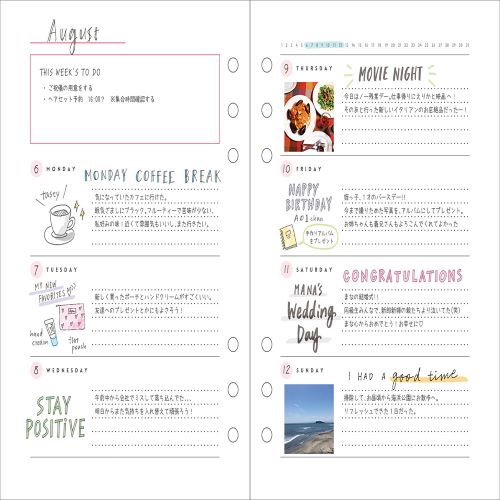 August
THIS WEEK'S TO DO
・ご祝儀の用意をする
・ヘアセット予約 16:00? ※集合時間確認する
6 MONDAY
MONDAY COFFEE BREAK
tasty
気になっていたカフェに行けた。
眠気ざましにブラック。フルーティーで苦味が少ない、
私好みの味!近くて雰囲気もいいし、また行きたい。
7 TUESDAY
MY NEW FAVORITES
新しく買ったポーチとハンドクリームがすごくいい。
友達へのプレゼントとかにもよさそう!
hand cream
flat pouch
8 WEDNESDAY
STAY POSITIVE
午前中から会社でミスして落ち込んでた...
明日からまた気持ちを入れ替えて頑張ろう!
1 2 3 4 5 6 7 8 9 10 11 12 13 14 15 16 17 18 19 20 21 22 23 24 25 26 27 28 29 30 31
9 THURSDAY
MOVIE NIGHT
今日はノー残業デー。仕事帰りにえりかと映画へ!
そのあと行った新しいイタリアンのお店絶品だったー!
10 FRIDAY
HAPPY BIRTHDAY
AOI chan
手作りアルバムをプレゼント
姪っ子、1才のバースデー!!
今まで撮りためた写真を、アルバムにしてプレゼント。
お姉ちゃんも義兄さんもよろこんでくれてよかった
11 SATURDAY
CONGRATULATIONS
MANA'S Wedding Day
まなの結婚式!!
同級生みんなで、新郎新婦の親たちより泣いてた(笑)
まな心からおめでとう!お幸せに♡
12 SUNDAY
I HAD A good time
掃除して、お昼頃から海浜公園にお散歩へ。
リフレッシュできた1日だった。